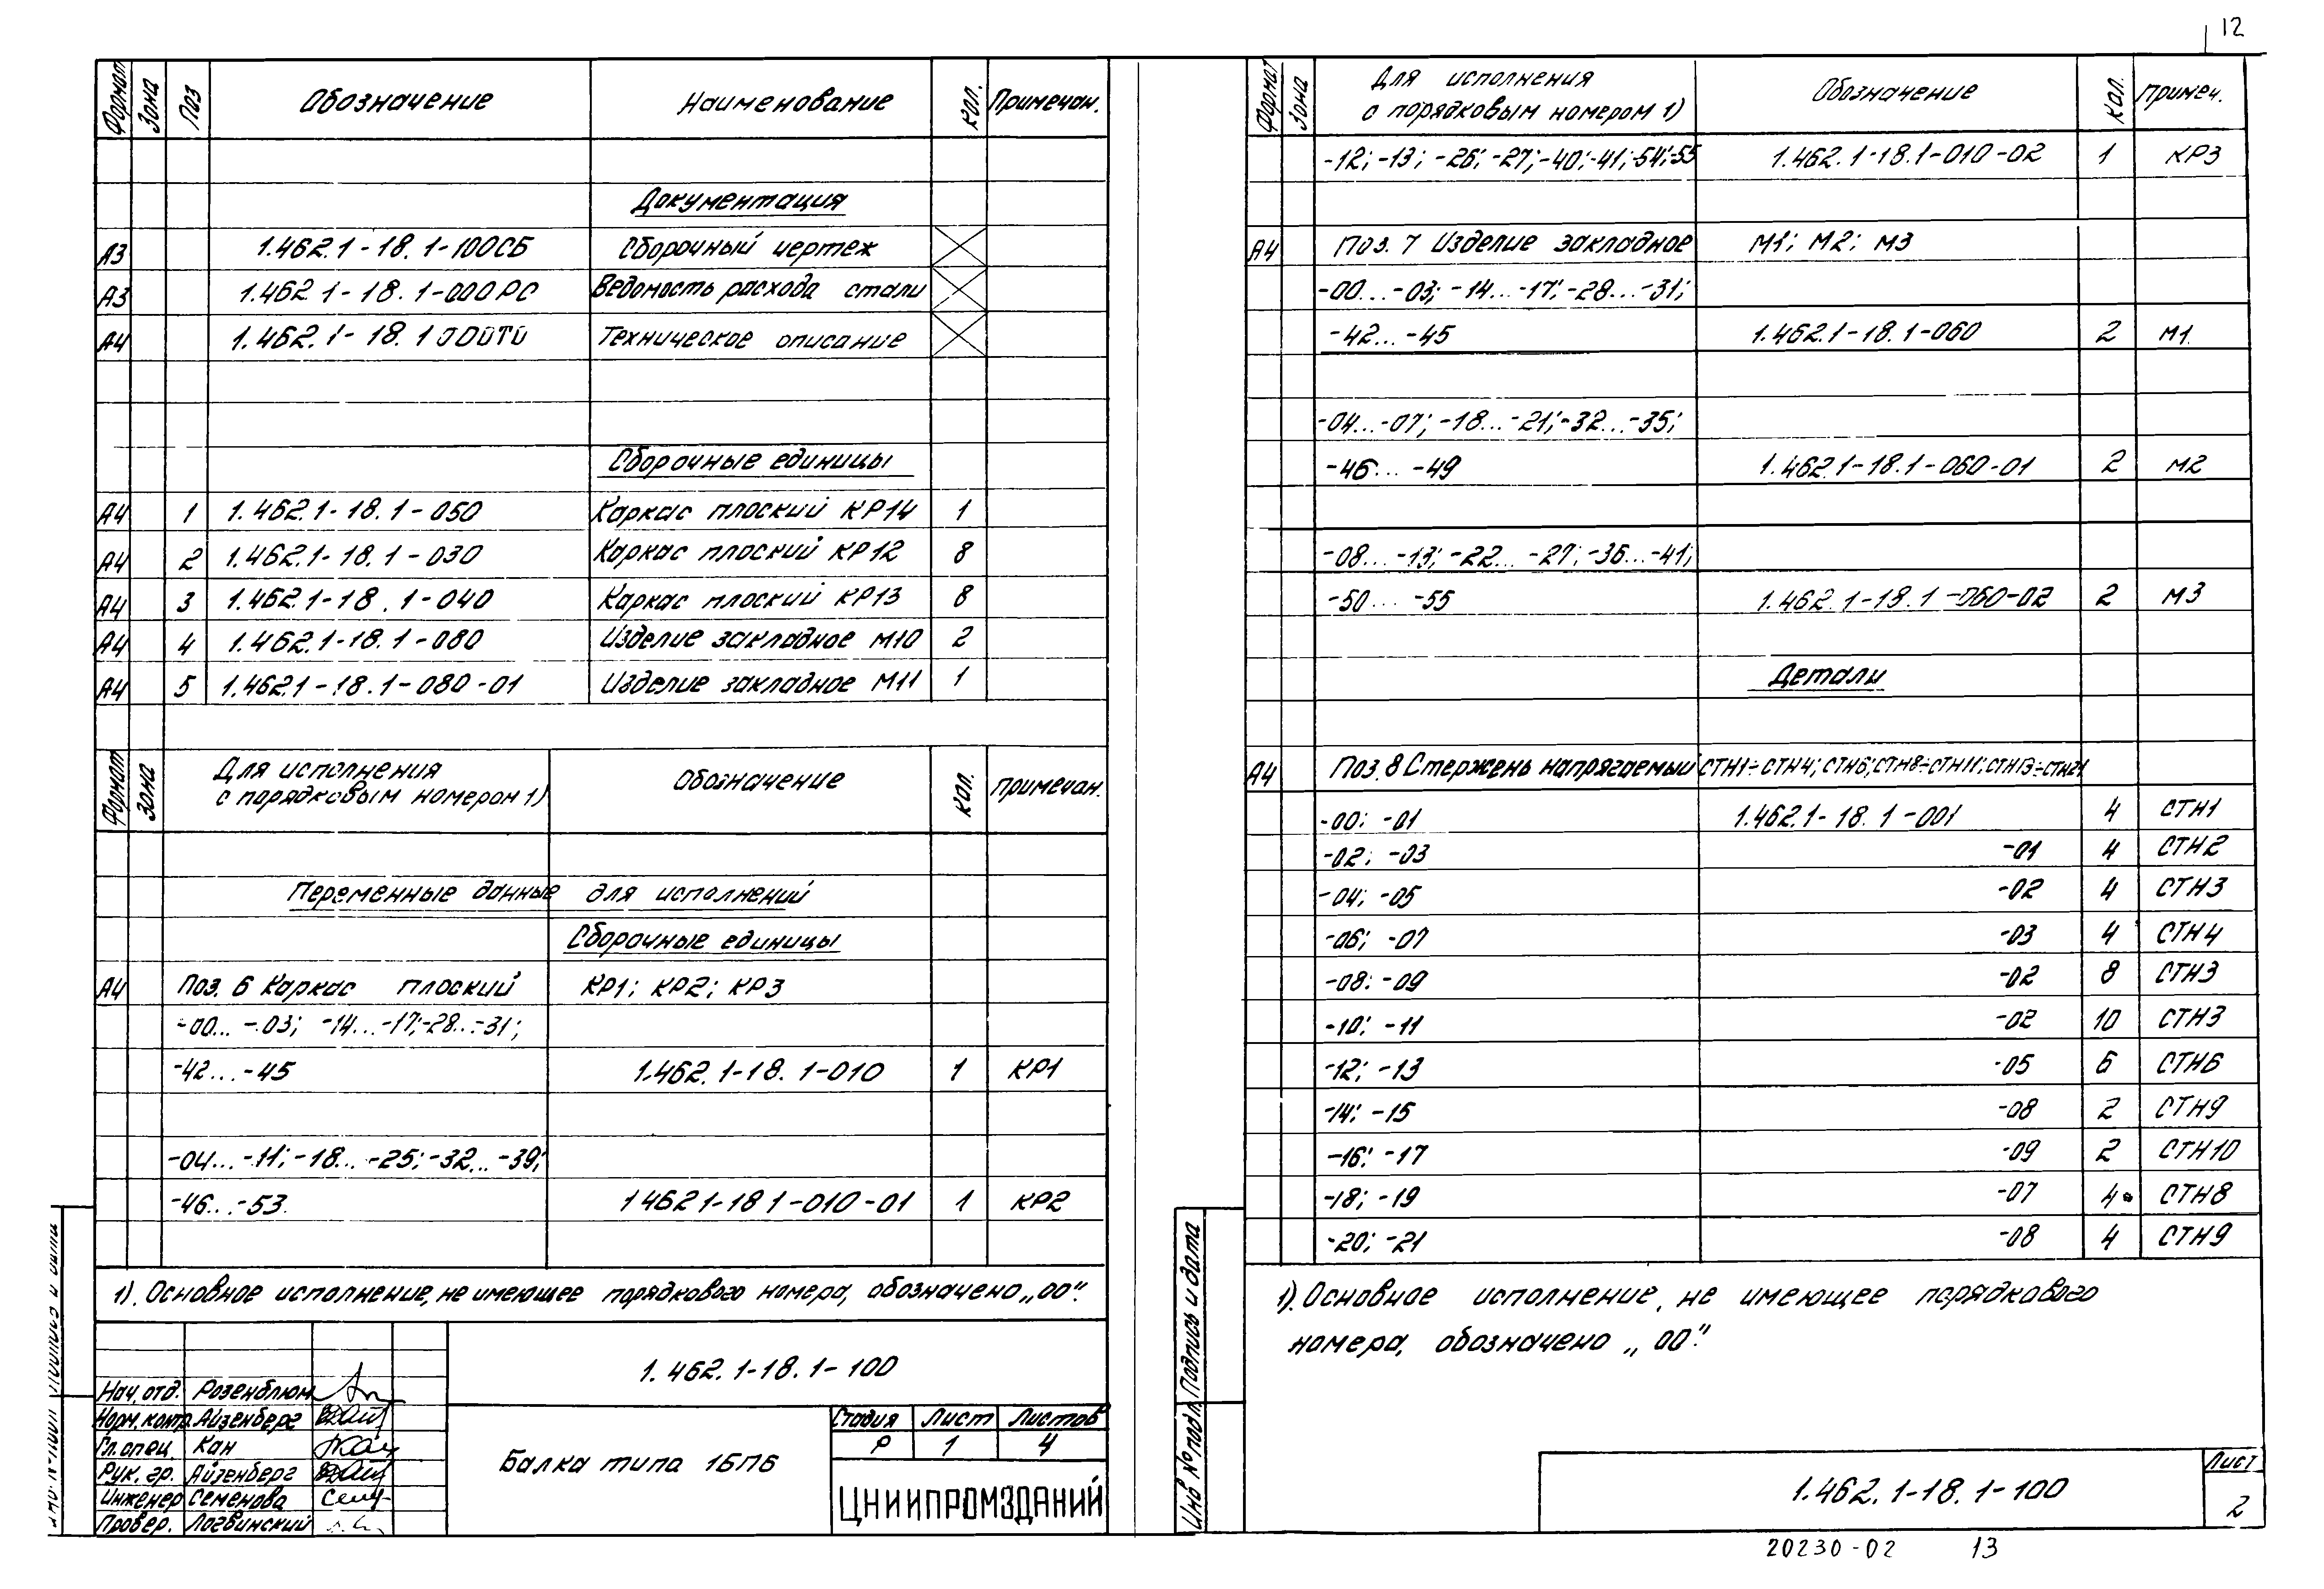 12
Формат Зона Поз Обозначение Наименование Кол. Примечан.
Документация
А3 1.462.1-18.1-100СБ Сборочный чертеж
А3 1.462 1-18.1-000РС Ведомость расхода стали
А4 1.462.1-18.1 000ТО Техническое описание
Сборочные единицы
А4 1 1.462.1-18.1-050 Каркас плоский КР14 1
А4 2 1.462.1-18.1-030 Каркас плоский КР12 8
А4 3 1.462.1-18.1-040 Каркас плоский КР13 8
А4 4 1.462.1-18.1-080 Изделие закладное М10 2
А4 5 1.462.1-18.1-080-01 Изделие закладное М11 1
Формат Зона Для исполнения Обозначение Кол. Примечан.
с порядковым номером 1)
Переменные данные для исполнений
Сборочные единицы
А4 Поз. 6 Каркас плоский КР1; КР2; КР3
-00...-03; -14...-17; -28...-31;
-42...-45 1.462.1-18.1-010 1 КР1
-04...-11; -18...-25; -32...-39;
-46...-53. 1 462 1-18 1-010-01 1 КР2
1). Основное исполнение, не имеющее порядкового номера, обозначено „00".
1.462.1-18.1-100
Нач. отд. Розенблюм
Норм. контр. Айзенберг
Гл. спец. Кан
Рук. гр. Айзенберг
Инженер Семенова
Провер. Логвинский
Балка типа 1БП6
Стадия Лист Листов
Р 1 4
ЦНИИПРОМЗДАНИЙ
Формат Зона Для исполнения Обозначение Кол. Примеч.
с порядковым номером 1)
-12; -13; -26; -27; -40; -41; -54; -55 1.462.1-18.1-010-02 1 КР3
А4 Поз. 7 Изделие закладное М1; М2; М3
-00...-03; -14...-17; -28...-31;
-42...-45 1.462.1-18.1-060 2 М1.
-04...-07; -18...-21; -32...-35;
-46...-49 1.462.1-18.1-060-01 2 М2
-08...-13; -22...-27; -36...-41;
-50...-55 1.462.1-18.1-060-02 2 М3
Детали
А4 Поз. 8 Стержень напрягаемый СТН1÷СТН4; СТН6; СТН8÷СТН11; СТН13÷СТН21
-00; -01 1.462.1-18.1-001 4 СТН1
-02; -03 -01 4 СТН2
-04; -05 -02 4 СТН3
-06; -07 -03 4 СТН4
-08; -09 -02 8 СТН3
-10; -11 -02 10 СТН3
-12; -13 -05 6 СТН6
-14; -15 -08 2 СТН9
-16; -17 -09 2 СТН10
-18; -19 -07 4 СТН8
-20; -21 -08 4 СТН9
1). Основное исполнение, не имеющее порядкового
номера, обозначено „00".
Инв № подл. Подпись и дата
1.462.1-18.1-100
Лист
2
20230-02 13